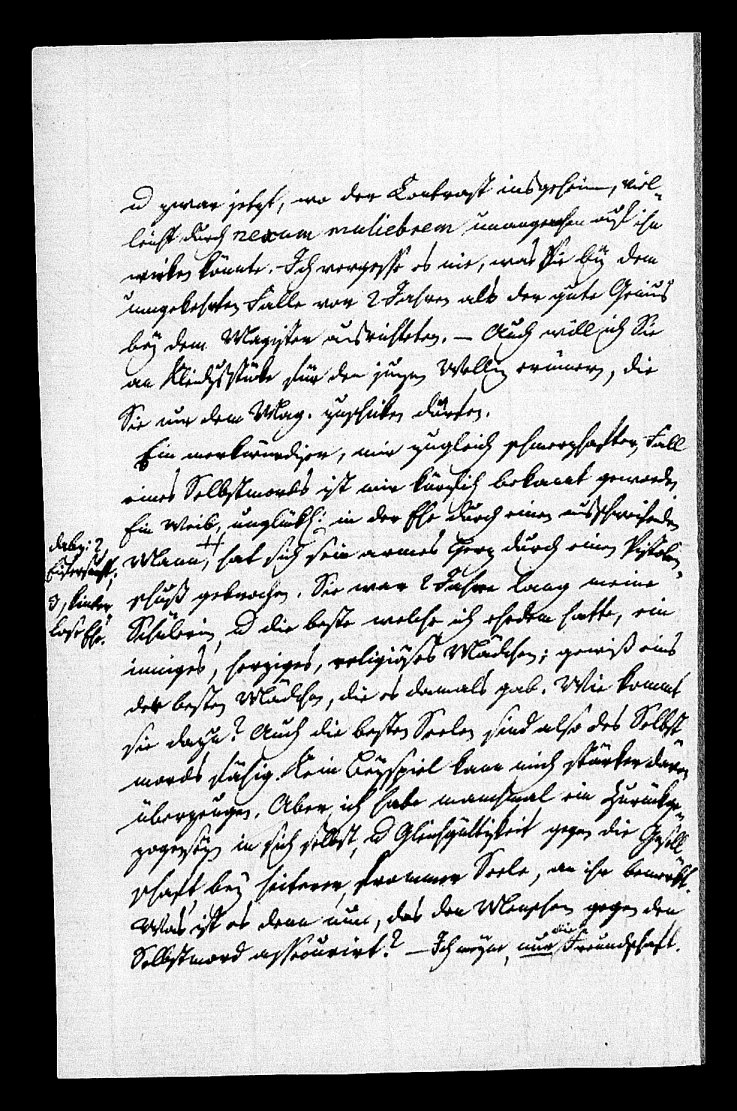 u zwar jetzt, wo der Contrast insgeheim, viel-
leicht durch nexum muliebrem unangesehen auf ihn
wirken könnte. Ich vergesse es nie, was Sie bey dem
umgekehrten Falle vor 2 Jahren als der gute Genius
bey dem Magister ausrichteten. — Auch will ich Sie
an Kleidgsstüke für den jungen erinnern, die
Sie nur dem Mag. zuschiken dürfen.
Ein merkwürdiger, mir zugleich schmerzhafter Fall
eines Selbstmords ist mir kürzlich bekannt geworden.
Ein Weib, unglükl: in der Ehe durch einen ausschweifenden
Mann, hat sich sein armes Herz durch einen Pistolen-
schuß gebrochen. Sie war 2 Jahre lang meine
Schülerin, u die beste welche ich ehedem hatte, ein
inniges, herziges, religiöses Mädchen; gewiß eins
der besten Mädchen, die es damals gab. Wie kommt
sie dazu? Auch die besten Seelen sind also des Selbst
mords fähig. Kein Beyspiel kann mich stärker davon
überzeugen. Aber ich habe manchmal ein Zurückge-
zogenseyn in sich selbst, u Gleichgültigkeit gegen die Gesell-
schaft bey heiterer, frommer Seele, an ihr bemerkt.
Was ist es denn nun, das den Menschen gegen den
Selbstmord assecurirt? — Ich meyne, nur die Freundschaft.
dabei:?
Eifersucht;
u, kinder-
lose Ehe.